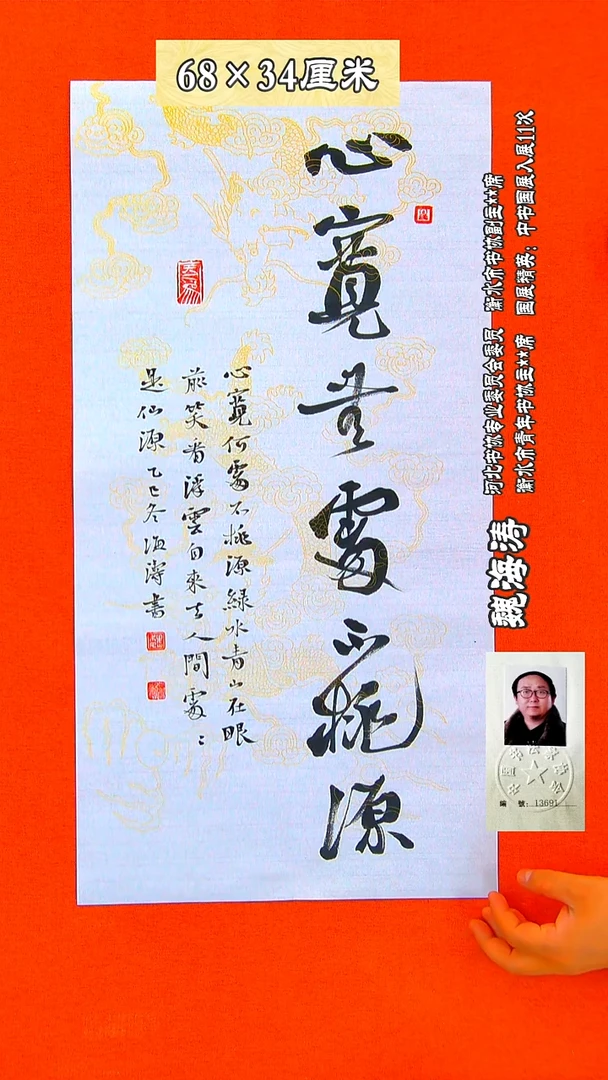 68×34厘米
心寬無處不桃源
心寬何處不桃源綠水青山在眼
前笑看浮雲自來去人間處〻
是仙源乙巳冬海濤書
河北书协专业委员会委员 衡水市书协副主**席
衡水市青年书协主**席 国展精英：中书国展入展11次
魏海涛
編 號：13691